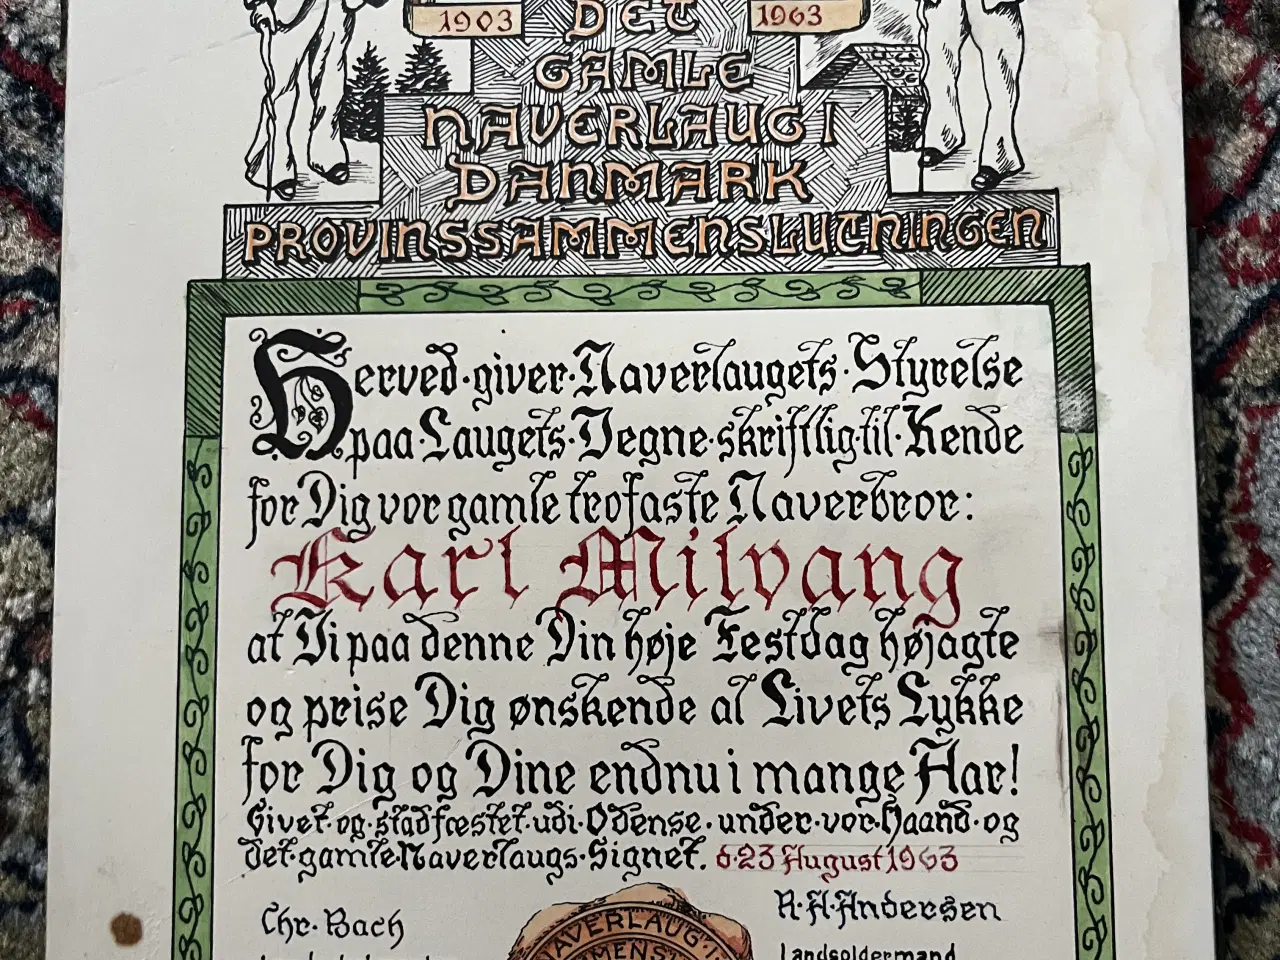 1903
1963
DET
GAMLE
NAVERLAUG I
DANMARK
PROVINSSAMMENSLUTNINGEN
Herved·giver·Naverlaugets·Styrelse
paa·Laugets·Vegne·skriftlig·til·Kende
for Dig vor gamle trofaste Naverbror:
Karl Milvang
at Vi paa denne Din høje Festdag højagte
og prise Dig ønskende al Livets Lykke
for Dig og Dine endnu i mange Aar!
Givet·og·stadfæstet·udi·Odense·under·vor·Haand·og
det·gamle·Naverlaugs·Signet. d·23 August 1963
Chr. Bach
R·A·Andersen
Landsoldermand
NAVERLAUG